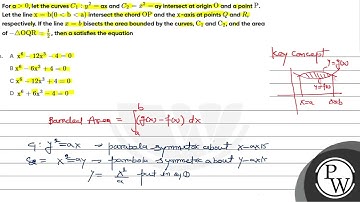 For a > 0, let the curves C₁ : y² = ax and C₂ = x² = ay intersect at origin O and a point P.
Let the line x = b(0 < b < a) intersect the chord OP and the x-axis at points Q and R,
respectively. If the line x = b bisects the area bounded by the curves, C₁ and C₂, and the area
of −△OQR = ½, then a satisfies the equation
A x⁶ − 12x³ − 4 = 0
B x⁶ − 6x³ + 4 = 0
C x⁶ − 12x³ + 4 = 0
D x⁶ + 6x³ − 4 = 0
Key Concept
y=g(x)
y=f(x)
x=a
x=b
Bounded Area = ∫ₐᵇ (g(x) − f(x)) dx
C₁: y² = ax → parabola symmetric about x-axis
C₂ = x² = ay → parabola symmetric about y-axis
y = x²/a put in eq ①
P
W